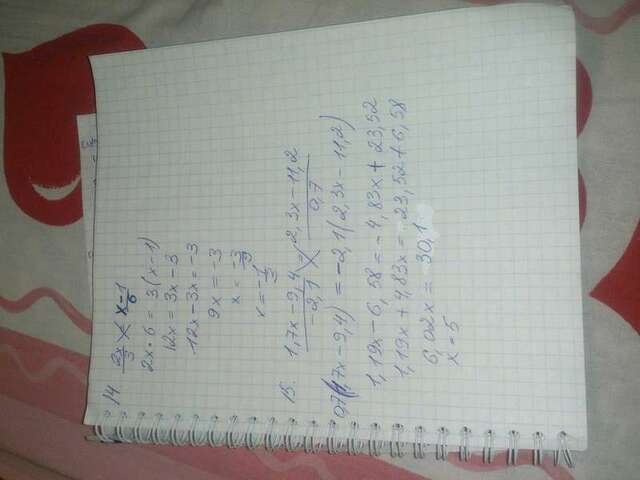 14
2x/3 = x-1/6
2x · 6 = 3(x-1)
12x = 3x-3
12x-3x=-3
9x = -3
x = -3/9
x = -1/3
15. 1,7x-9,4/-2,1 = 2,3x-11,2/0,7
0,7(1,7x-9,4) = -2,1(2,3x-11,2)
1,19x-6,58=-4,83x+23,52
1,19x+4,83x= 23,52+6,58
6,02x = 30,1
x=5